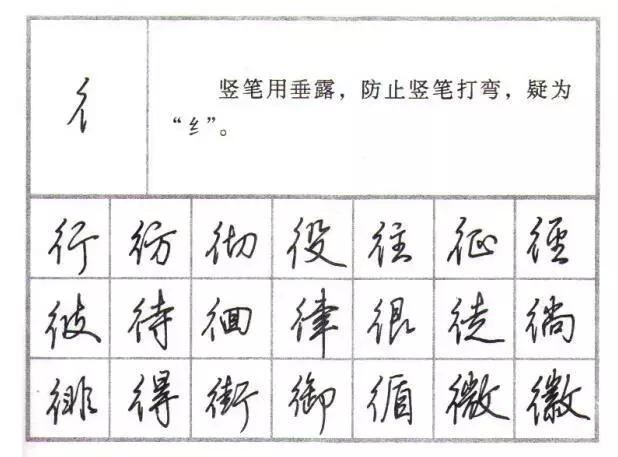 彳
竖笔用垂露，防止竖笔打弯，疑为
“纟”。
行彷彻役往征径
彼待徊律很徒徜
徘得街御循微徽